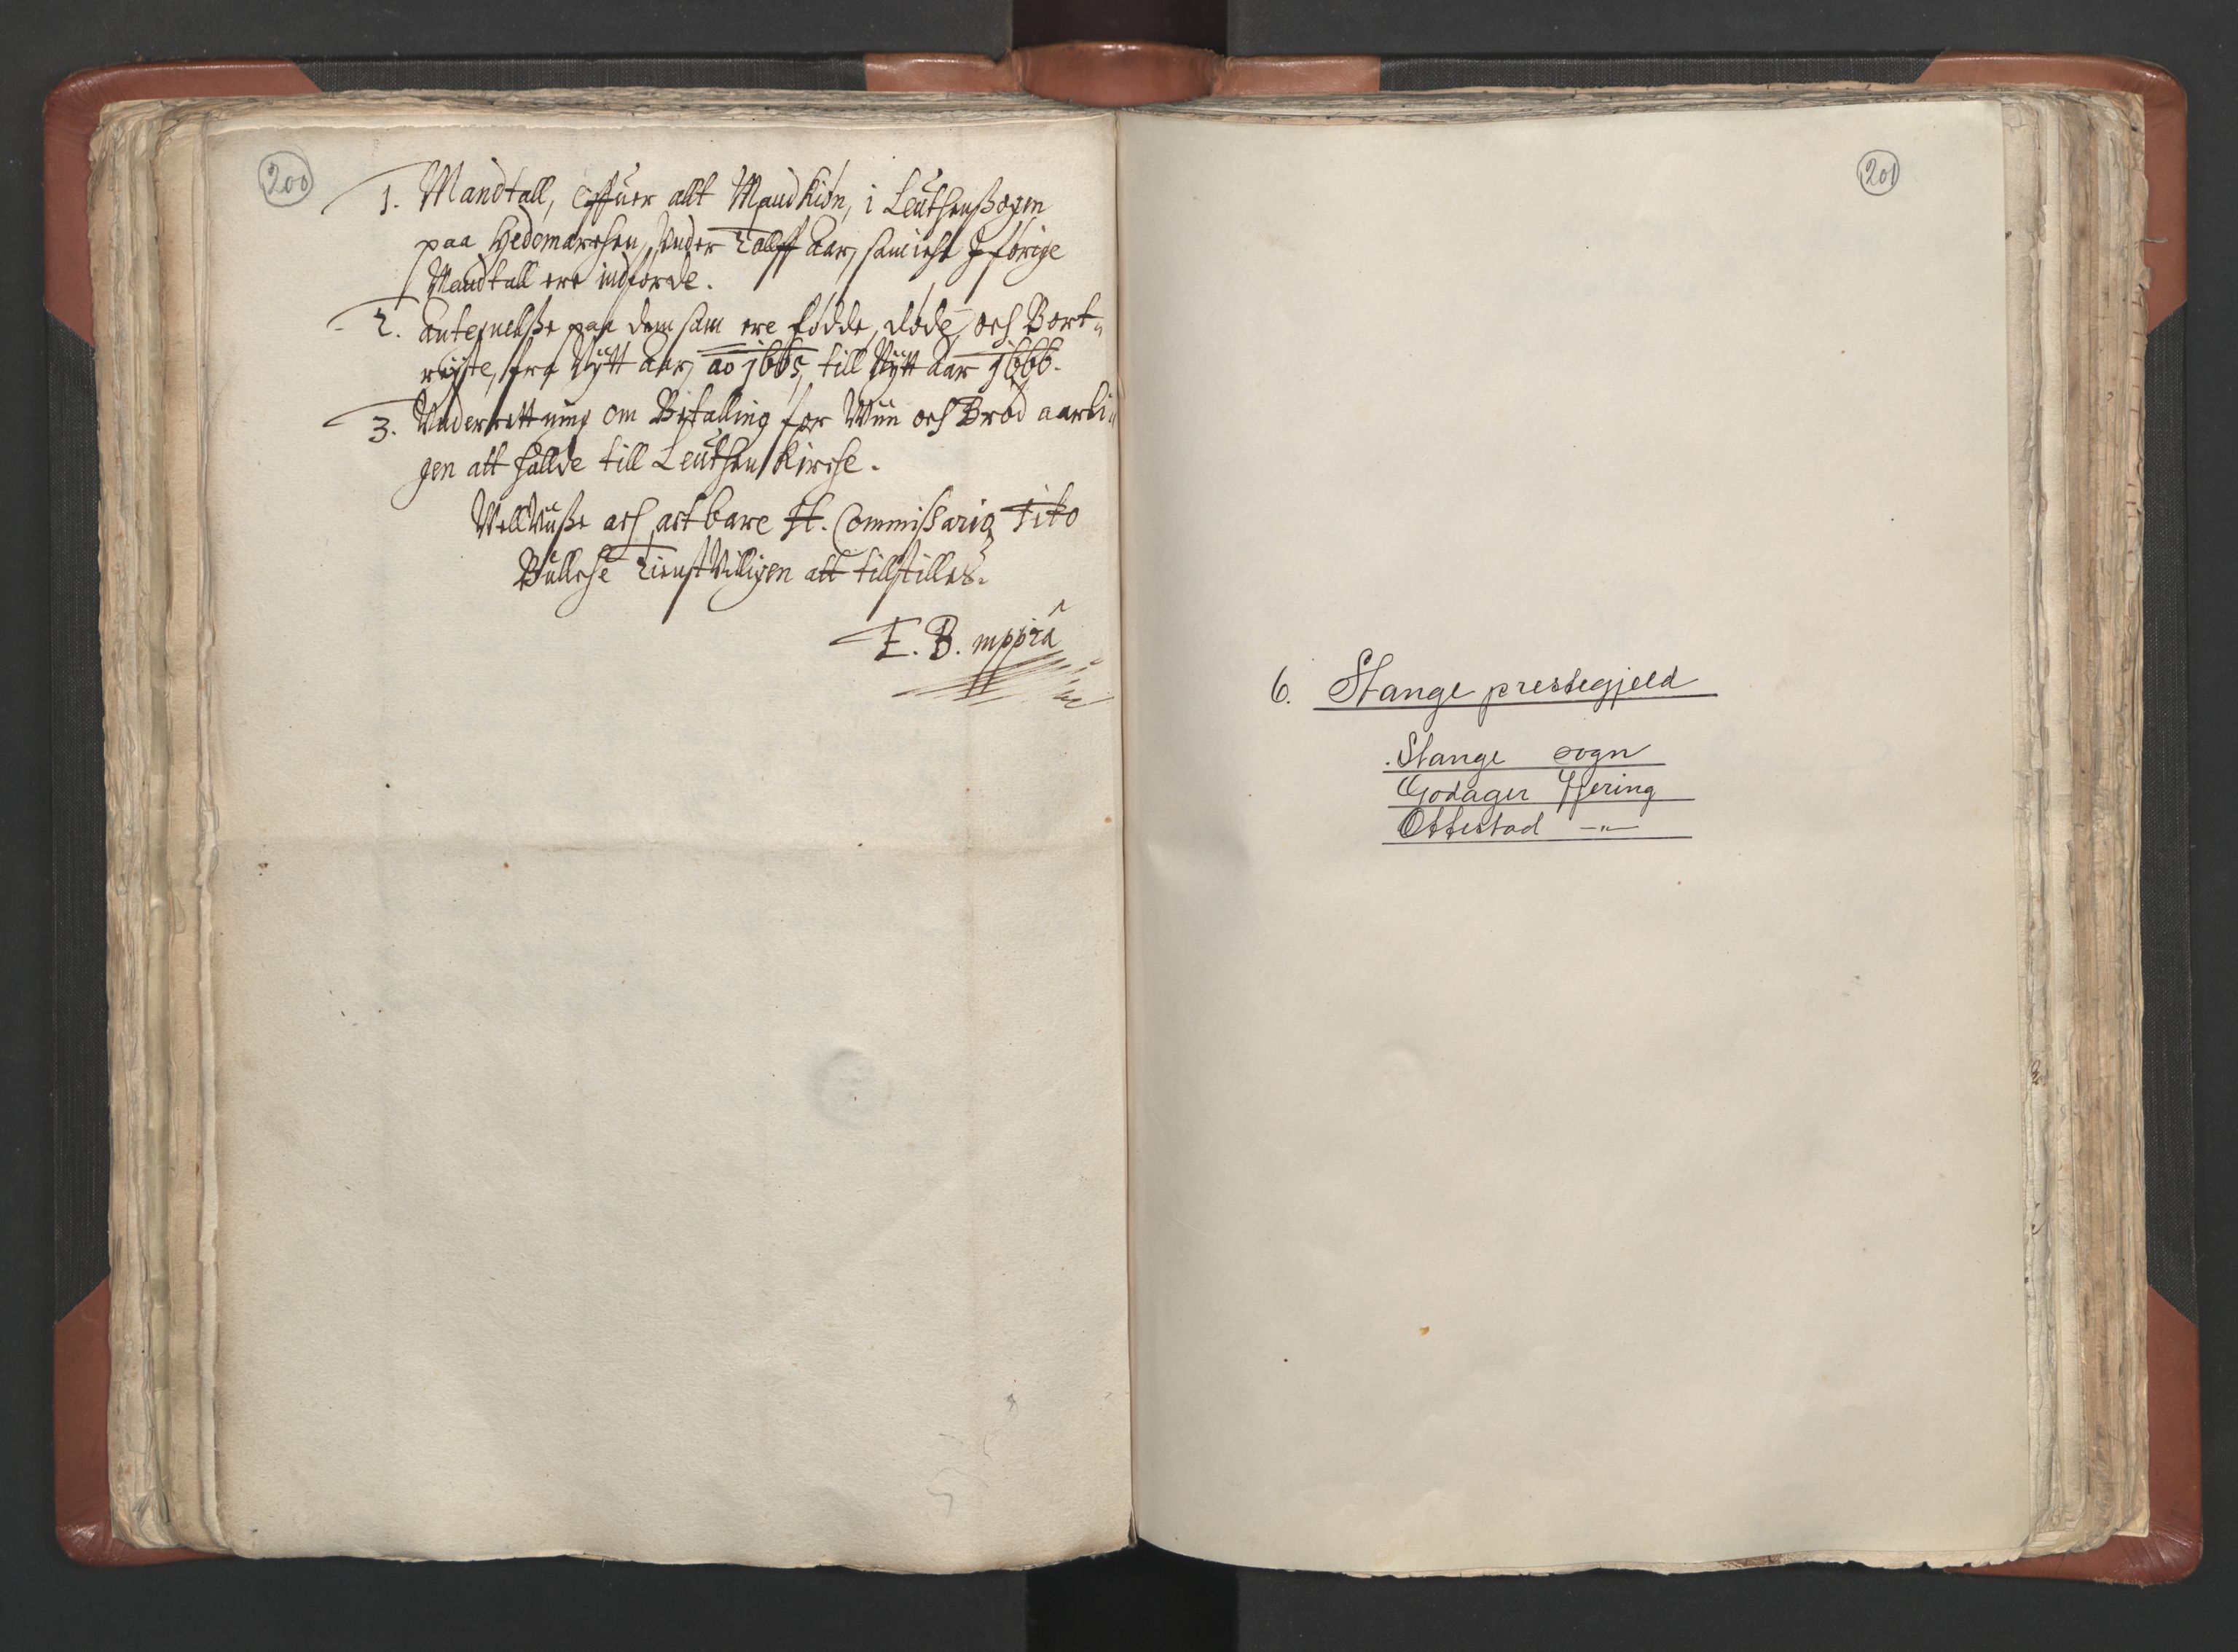 200
1. Mandtall, Offuer allt Mandkiøn, i Leuthenßogen
paa Hedemarchen, Under Tolff Aar, som icke J forige
Mandtall ere indførde.
2. Antegnelße paa dem som ere fødde, døde, och Bort-
reÿste, fra Nÿtt Aar, ao 1665, till Nÿtt Aar 1666.
3. Underrettning om Bitalling for Wiin och Brød aarli-
gen att hollde till Leuthen Kirche.
Vell Viiße och actbare H. Commißario Tito
Büllche Tienst Villigen att tillstilles.
E. B. mppria
201
6. Stange prestegjeld
Stange sogn
Godager Fjering
Ottestad -"-